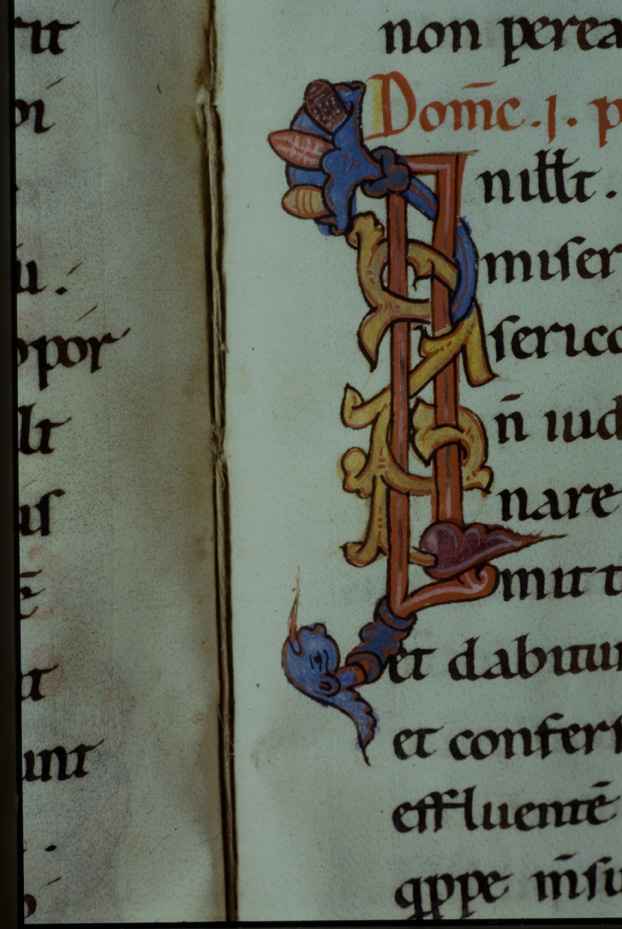 rit
pi
u.
por
lt
us
ē
t
unt
non perea
Dom̄c. j. p
I
nillt.
miser
serico
n̄ iud
nare
mitt
et dabitur
et confert
effluentē
qppe m̄su